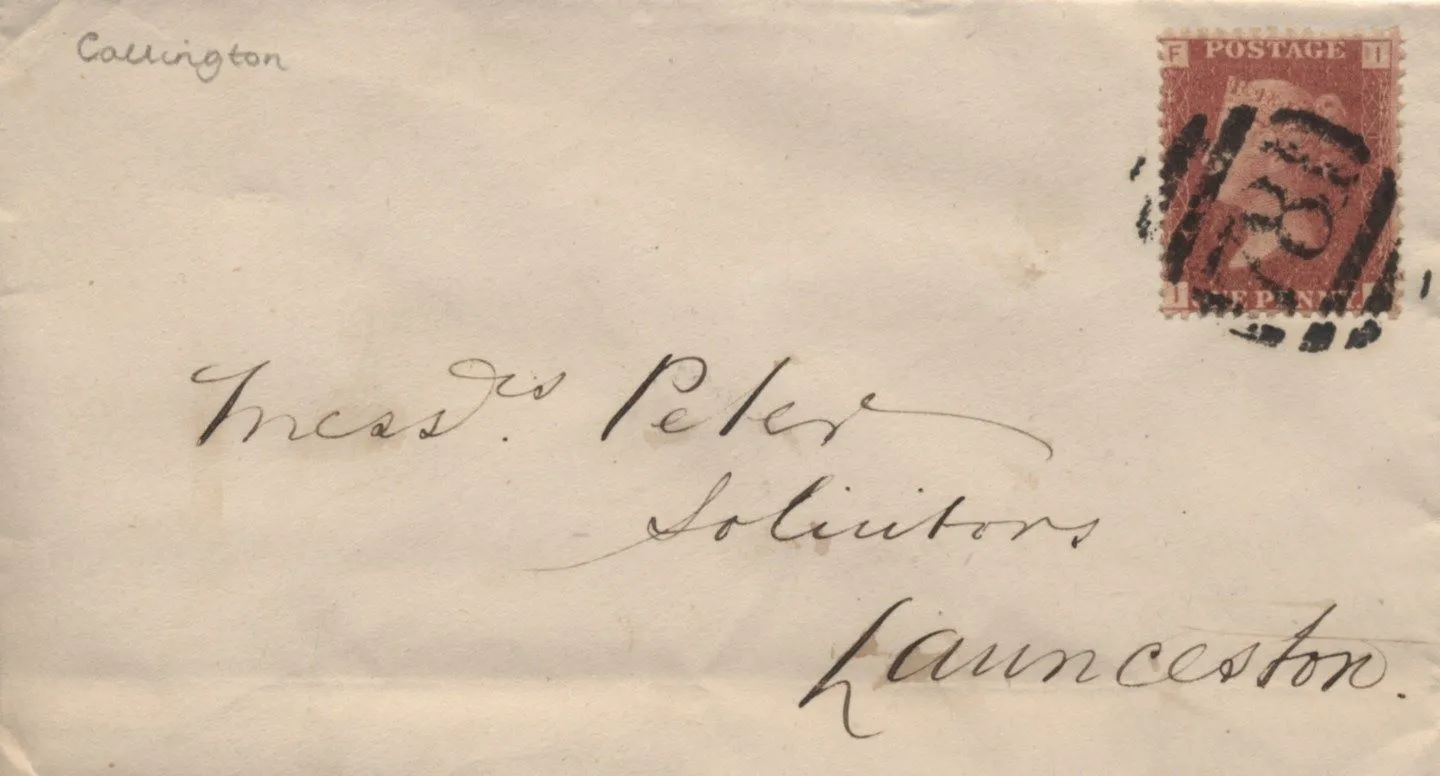 Callington
F POSTAGE I
Messrs. Peter
Solicitors
Launceston.